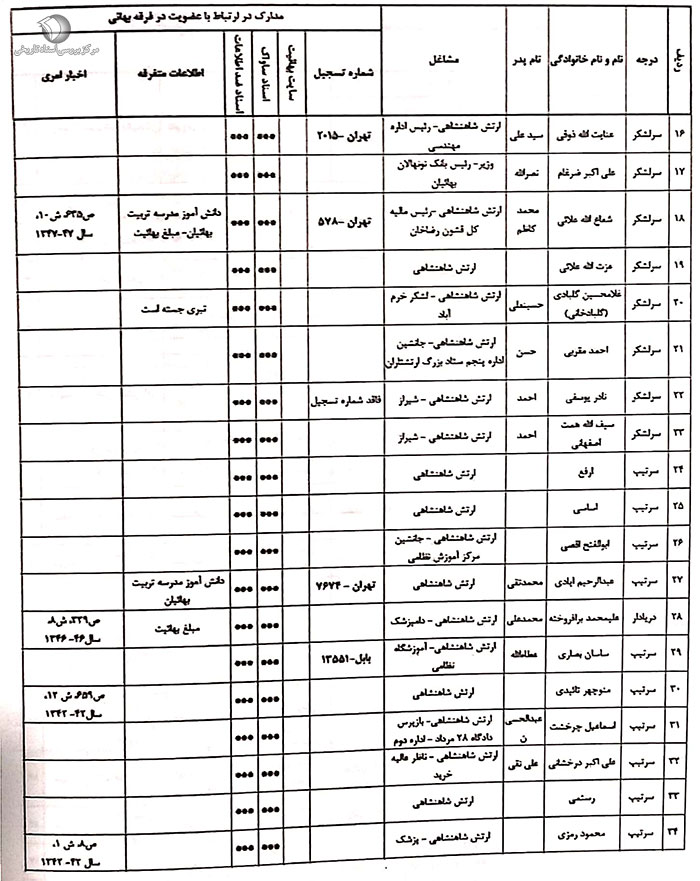 مرکز بررسی اسناد تاریخی
مدارک در ارتباط با عضویت در فرقه بهائی
ردیف درجه نام و نام خانوادگی نام پدر مشاغل شماره تسجیل سایت بهائیت اسناد ساواک اسناد ضد اطلاعات اطلاعات متفرقه اخبار امری
۱۶ سرلشکر عنایت الله ذوقی سید علی ارتش شاهنشاهی- رئیس اداره
مهندسی تهران -۲۰۱۵ ●●● ●●●
۱۷ سرلشکر علی اکبر ضرغام نصرالله وزیر- رئیس بانک نونهالان
بهائیان ●●● ●●●
۱۸ سرلشکر شعاع الله علائی محمد
کاظم ارتش شاهنشاهی -رئیس مالیه
کل قشون رضاخان تهران -۵۷۸ ●●● ●●● دانش آموز مدرسه تربیت
بهائیان- مبلغ بهائیت ص۶۳۵، ش۱۰،
سال ۴۷-۱۳۴۷
۱۹ سرلشکر عزت الله علائی ارتش شاهنشاهی ●●● ●●●
۲۰ سرلشکر غلامحسین گلبادی
(گلبادخانی) حسینعلی ارتش شاهنشاهی - لشکر خرم
آباد ●●● ●●● تبری جسته است
۲۱ سرلشکر احمد مقربی حسن ارتش شاهنشاهی- جانشین
اداره پنجم ستاد بزرگ ارتشتاران ●●● ●●●
۲۲ سرلشکر نادر یوسفی احمد ارتش شاهنشاهی - شیراز فاقد شماره تسجیل ●●● ●●●
۲۳ سرلشکر سیف الله همت
اصفهانی احمد ارتش شاهنشاهی - شیراز ●●● ●●●
۲۴ سرتیپ ارفع ارتش شاهنشاهی ●●● ●●●
۲۵ سرتیپ اساسی ارتش شاهنشاهی ●●● ●●●
۲۶ سرتیپ ابوالفتح اقصی ارتش شاهنشاهی - جانشین
مرکز آموزش نظامی ●●● ●●●
۲۷ سرتیپ عبدالرحیم ایادی محمدتقی ارتش شاهنشاهی تهران - ۷۶۷۴ ●●● ●●● دانش آموز مدرسه تربیت
بهائیان
۲۸ دریادار علیمحمد برافروخته محمدعلی ارتش شاهنشاهی - دامپزشک ●●● ●●● مبلغ بهائیت ص۳۳۹، ش۸،
سال۴۶- ۱۳۴۶
۲۹ سرتیپ ساسان بصاری عطاءالله ارتش شاهنشاهی- آموزشگاه
نظامی بابل-۱۳۵۵۱ ●●● ●●●
۳۰ سرتیپ منوچهر تائیدی ارتش شاهنشاهی ●●● ●●● ص۶۵۹، ش ۱۲،
سال۴۲- ۱۳۴۲
۳۱ سرتیپ اسماعیل چرخشت عبدالحسی
ن ارتش شاهنشاهی- بازپرس
دادگاه ۲۸ مرداد - اداره دوم ●●● ●●●
۳۲ سرتیپ علی اکبر درخشانی علی نقی ارتش شاهنشاهی - ناظر عالیه
خرید ●●● ●●●
۳۳ سرتیپ رستمی ارتش شاهنشاهی ●●● ●●●
۳۴ سرتیپ محمود رمزی ارتش شاهنشاهی - پزشک ●●● ●●● ص۸، ش ۱،
سال ۴۲- ۱۳۴۲